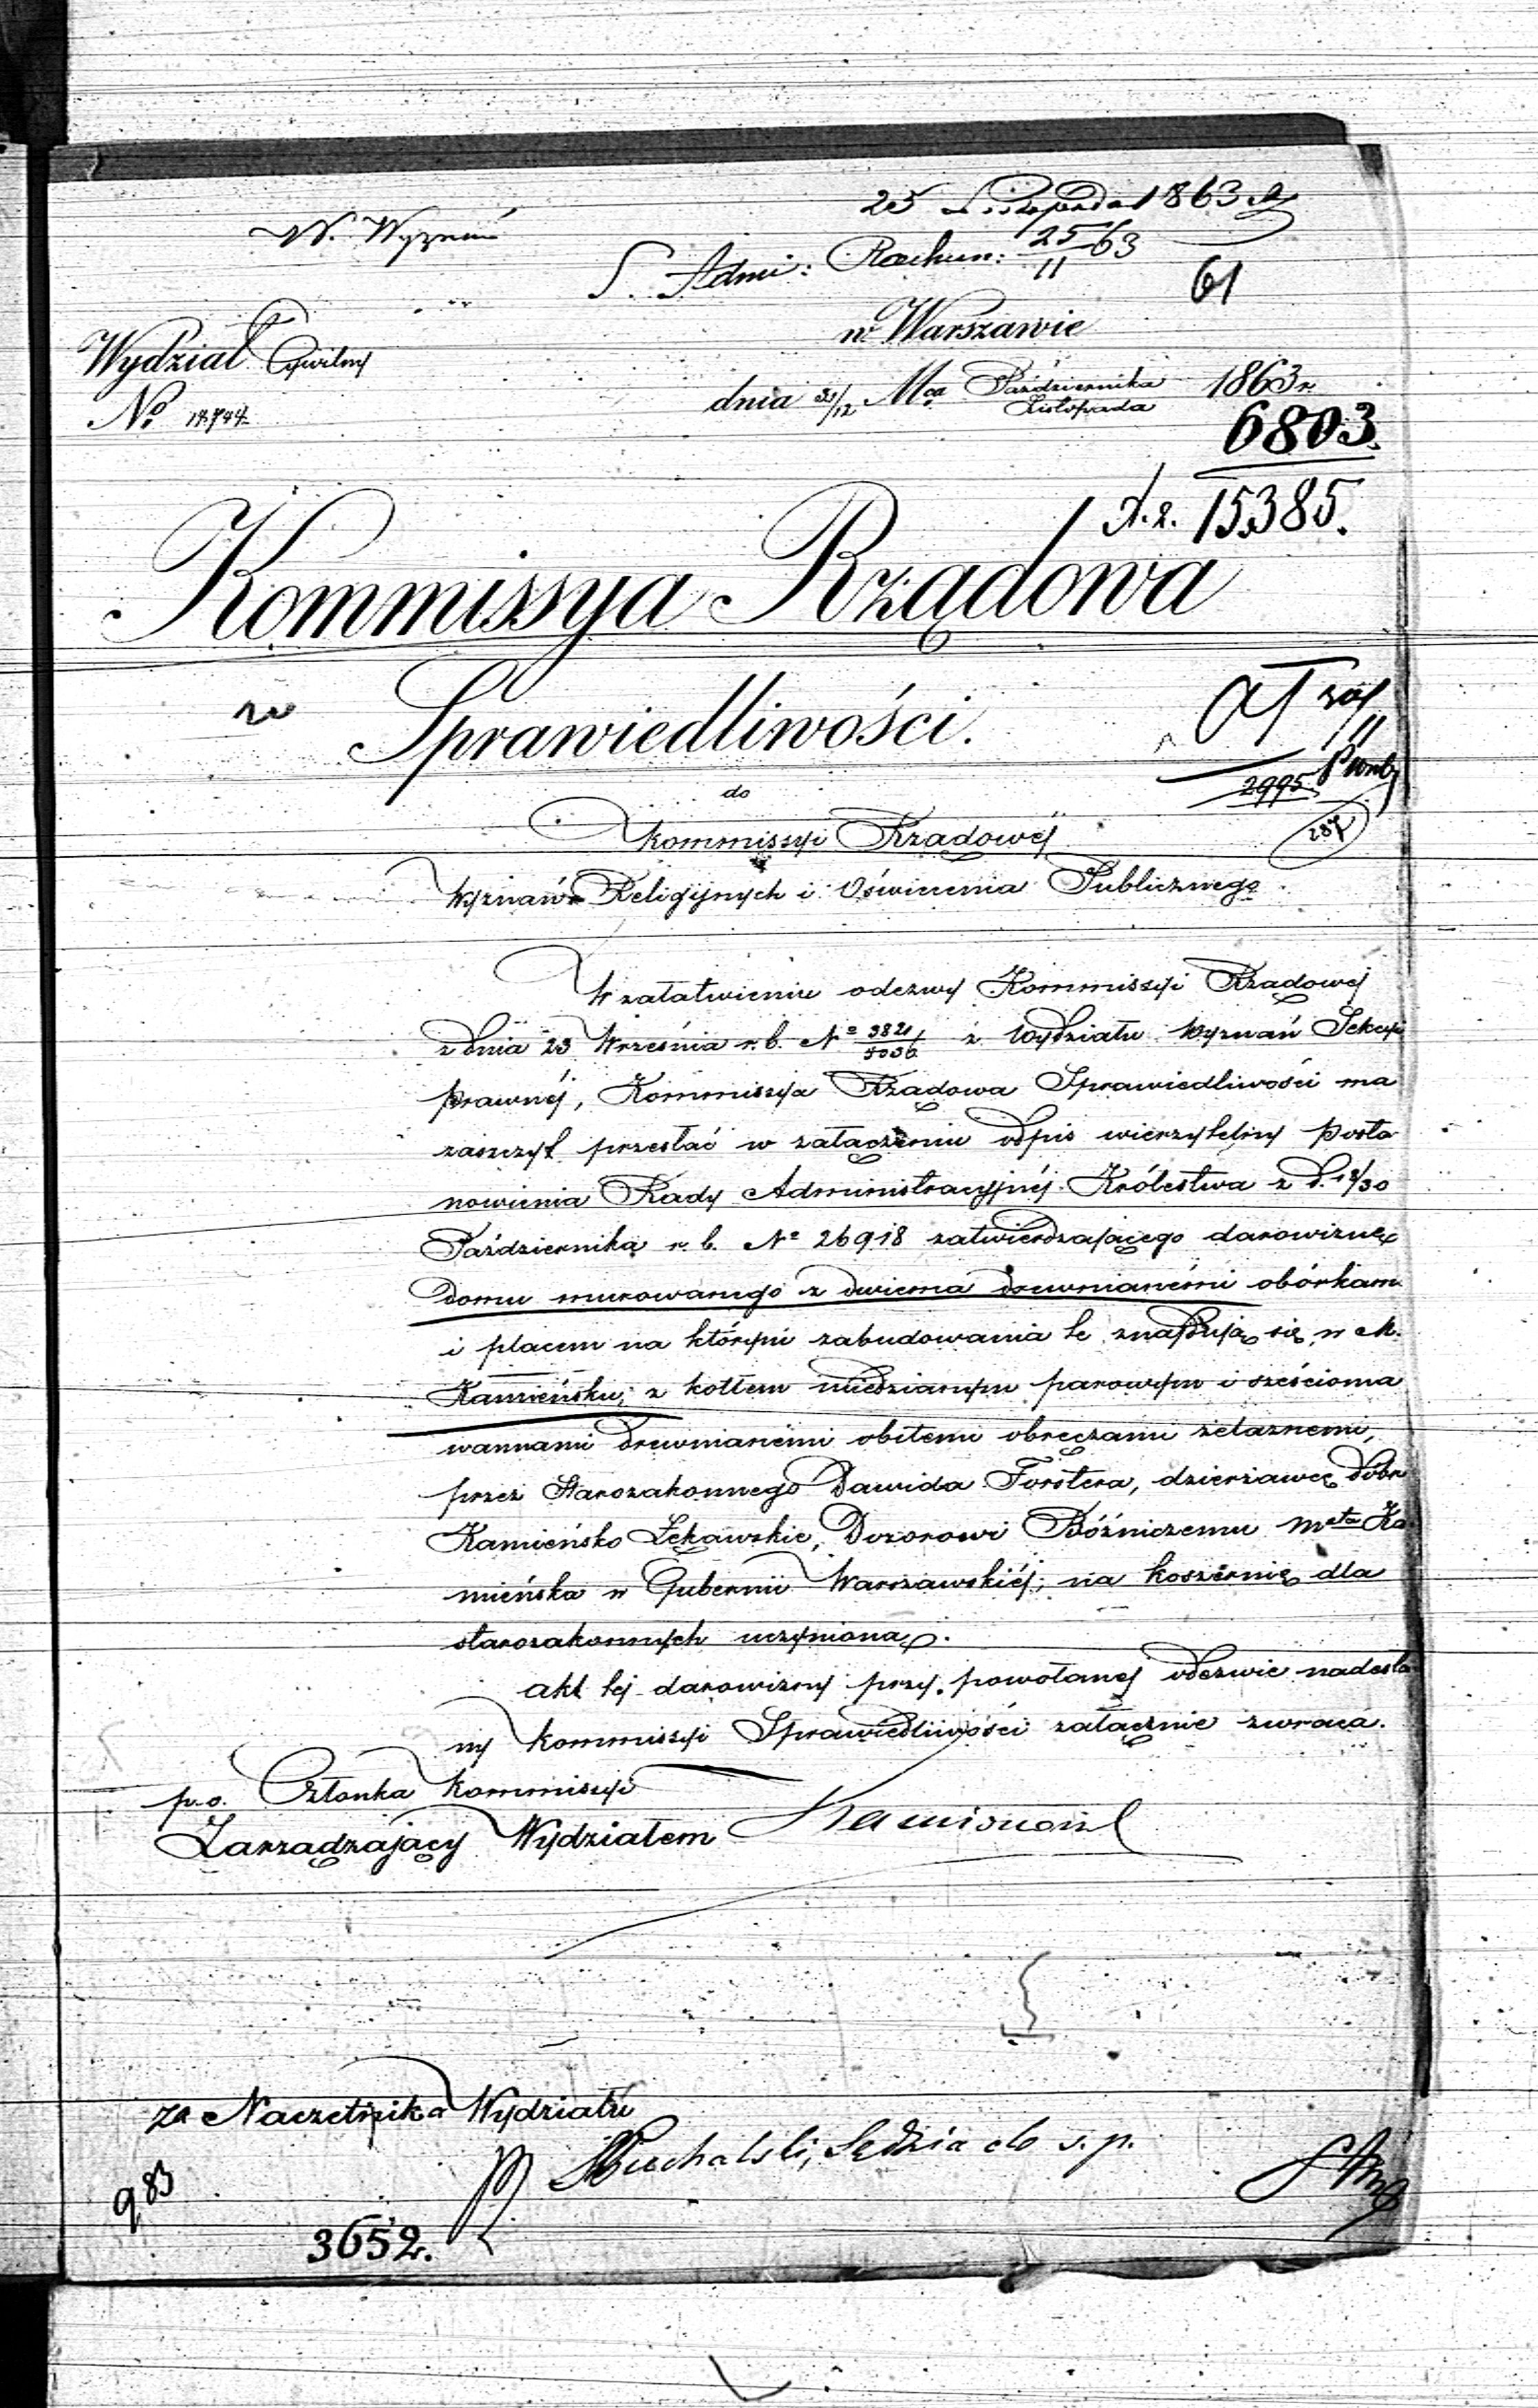 25 Listopada 1863 r
W. Wyznań
S. Admi: Rachun: 25/11 63
61
w Warszawie
Wydział Cywilny
dnia 31/12 Mca Października / Listopada 1863 r.
No
6803.
15385.
Kommissya Rządowa
Sprawiedliwości.
do
2995
287
Kommissyi Rządowéj
Wyznań Religijnych i Oświecenia Publicznego
W załatwieniu odezwy Kommissyi Rządowej
z dnia 23 Września r. b. No 3821/5036 z Wydziału Wyznań Sekcyi
Prawnéj, Kommissya Rządowa Sprawiedliwości ma
zaszczyt przesłać w załączeniu odpis wierzytelny Posta
nowienia Rady Administracyjnéj Królestwa z d. 18/30
Października r. b. No 26918 zatwierdzającego darowiznę
domu murowanego z dwiema drewnianémi obórkam
i placem na którym zabudowania te znajdują się, w M.
Kamieńsku, z kotłem miedzianym parowym i sześcioma
wannami drewnianémi obitemi obręczami żelaznemi,
przez Starozakonnego Dawida Forstera, dzierżawcę dóbr
Kamieńsko Łękawskie, Dozorowi Bóźniczemu Mta Ka
mieńska w Gubernii Warszawskiéj, na koszernię dla
starozakonnych uczynioną.
Akt tej darowizny przy powołanej odezwie nadesła
ny Kommissyi Sprawiedliwości załącznie zwraca.
p. o. Członka Kommissyi
Zarządzający Wydziałem
za Naczelnika Wydziału
Puchalski, Sędzia do s. p.
983
3652.